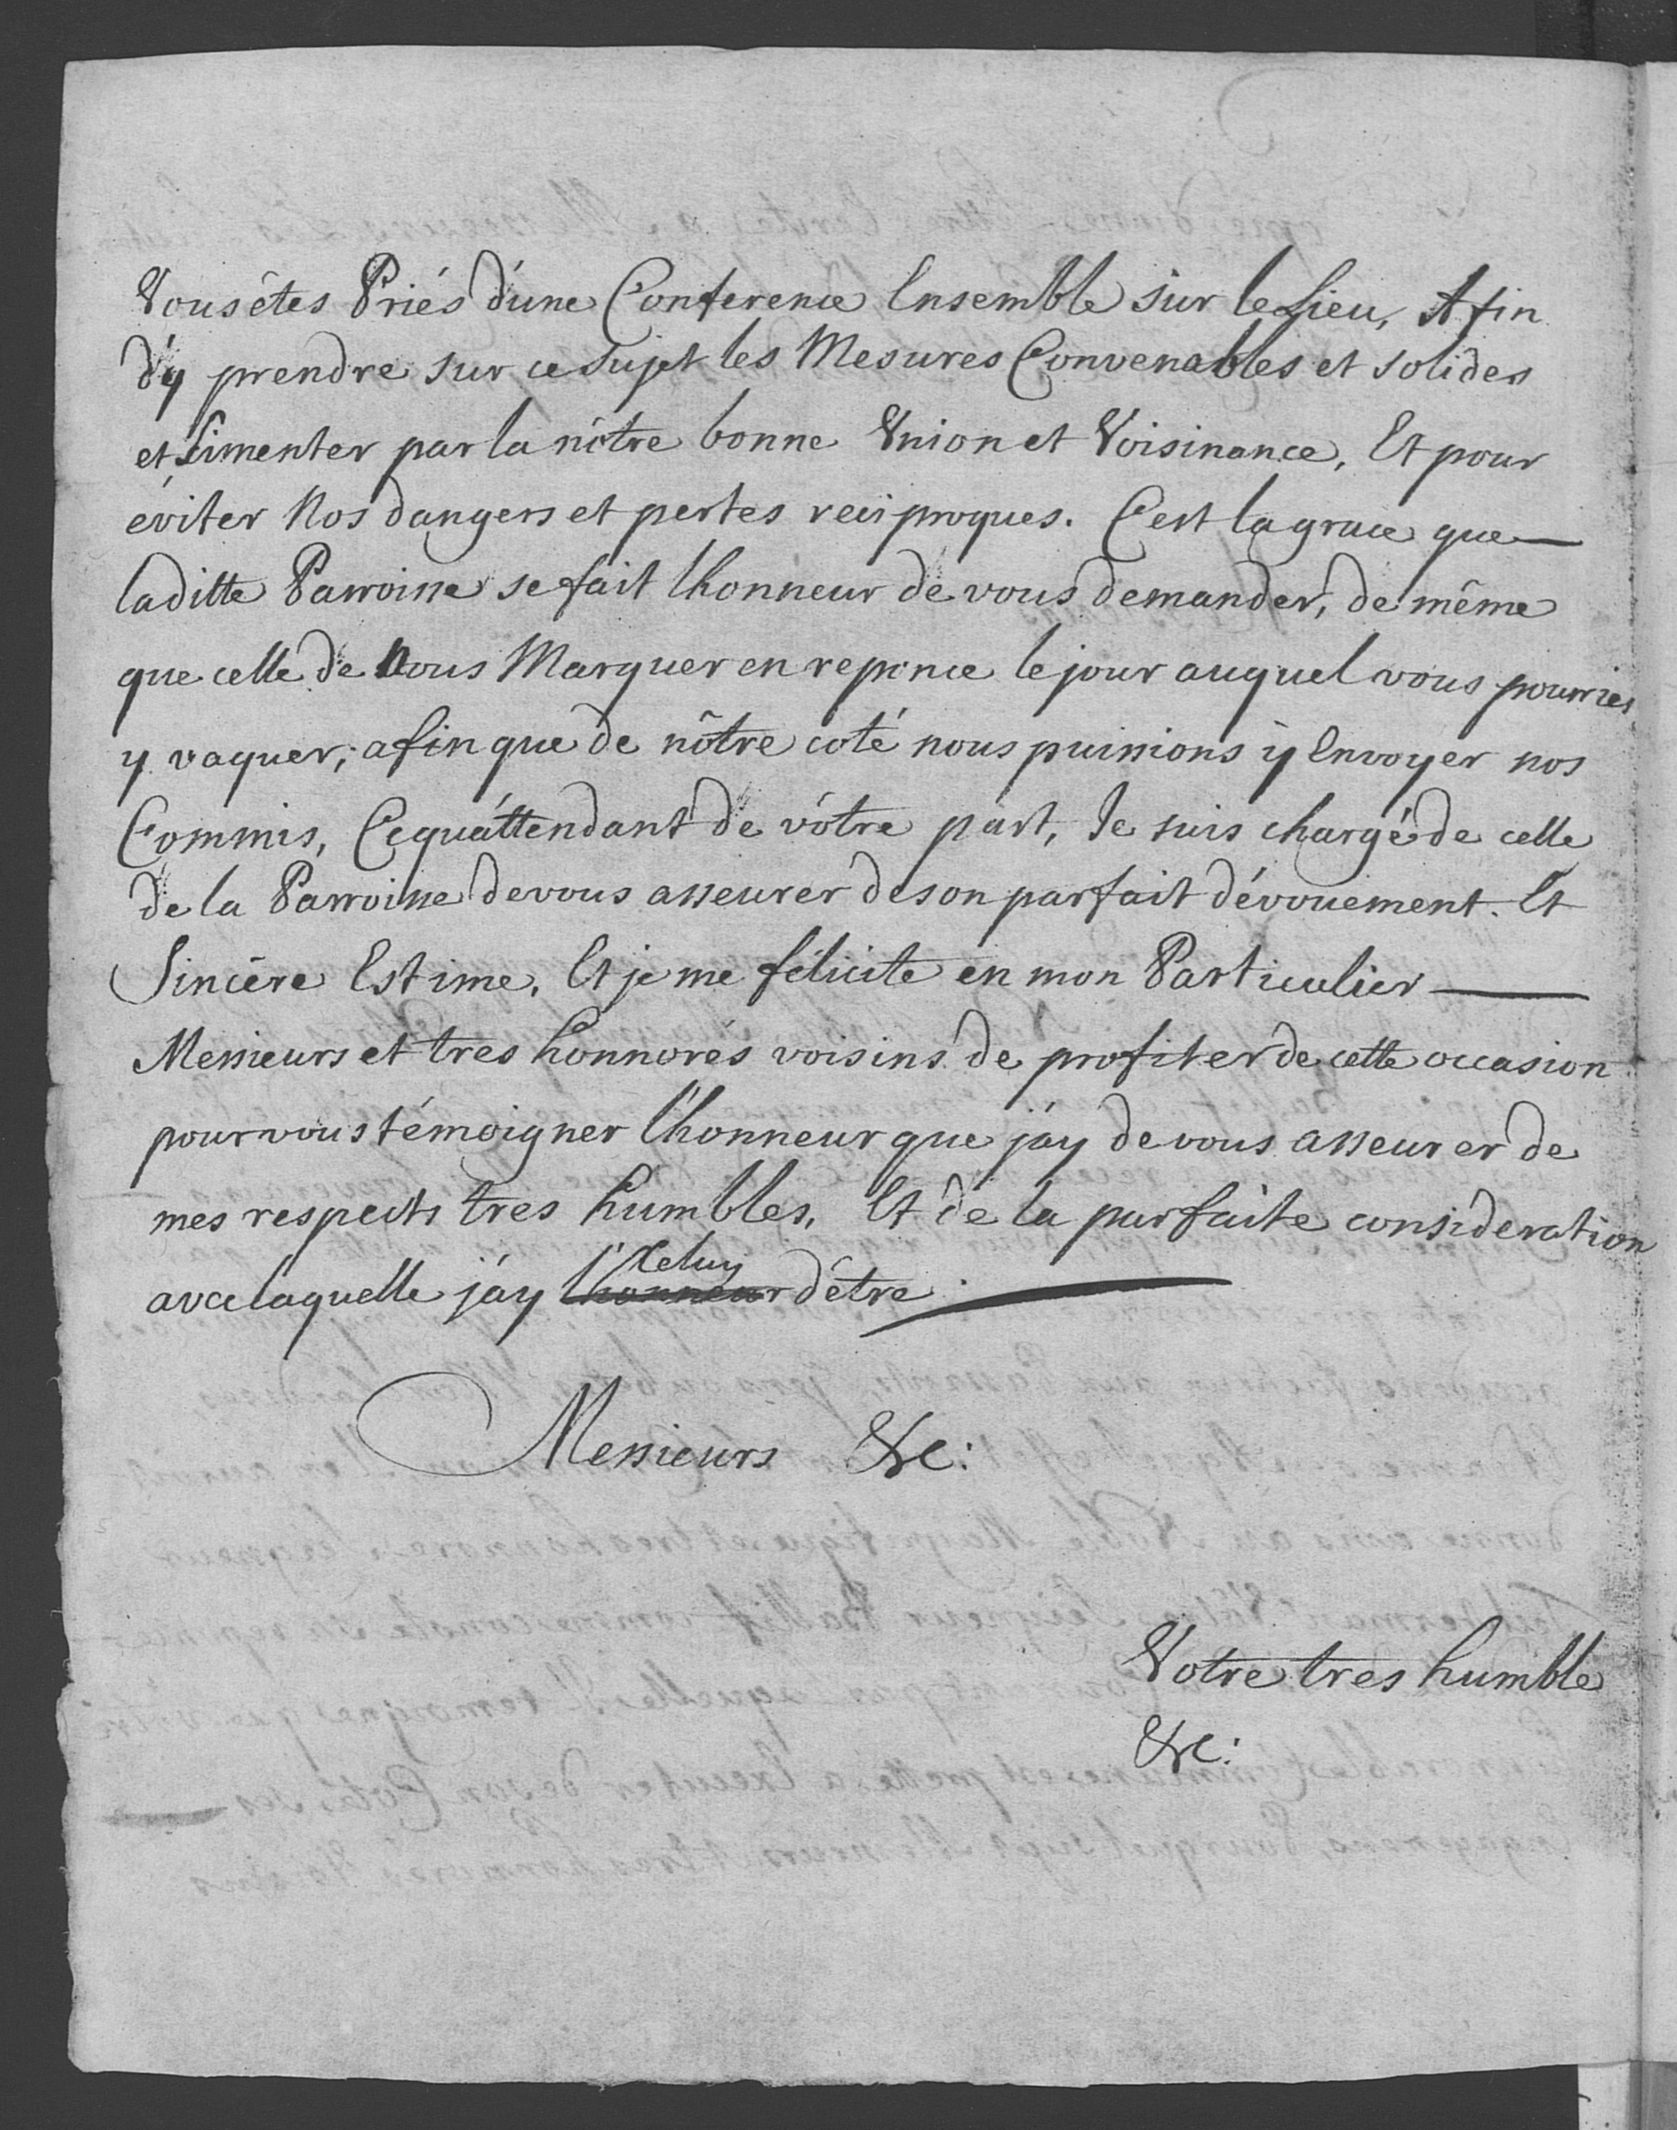 Vous êtes Priés d'une Conference Ensemble sur le Lieu, Afin
d'y prendre sur ce sujet les Mesures Convenables et solides
et Simenter par la nôtre bonne Union et Voisinance, Et pour
éviter Nos dangers et pertes reciproques. C'est la grace que
laditte Parroisse se fait lhonneur de vous demander, de même
que celle de Nous Marquer en reponce le jour auquel vous pourries
y vaquer, afin que de nôtre coté nous puissions ÿ Envoyer nos
Commis, Ce qu'áttendant de vôtre part, Je suis chargé de celle
de la Parroisse de vous asseurer de son parfait dévouement. Et
Sincère Estime, Et je me félicite en mon Particulier
Messieurs et tres honnorés voisins de profiter de cette occasion
pour vous témoigner l'honneur que j'ay de vous asseurer de
mes respects tres humbles, Et de la parfaite consideration
Celuy
avec laquelle j'ay l'honneur d'être
Messieurs &c:
Votre tres humble
&c: